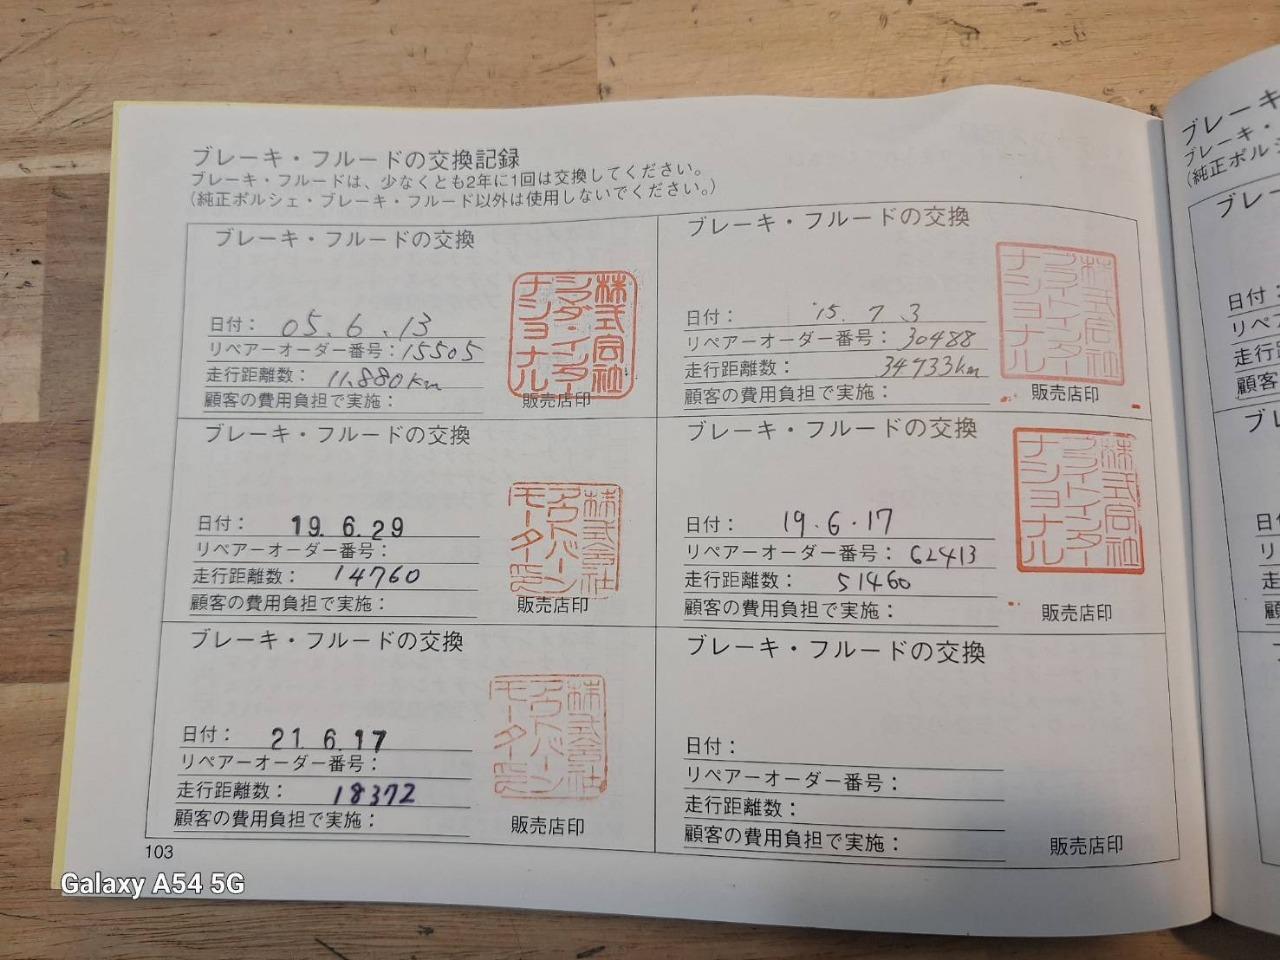 ブレーキ・フルードの交換記録
ブレーキ・フルードは、少なくとも2年に1回は交換してください。
(純正ポルシェ・ブレーキ・フルード以外は使用しないでください。)
ブレーキ・フルードの交換
日付: 05.6.13
リペアーオーダー番号: 15505
走行距離数: 11.880km
顧客の費用負担で実施:
株式会社
シマダ・インター
ナショナル
販売店印
ブレーキ・フルードの交換
日付: 19.6.29
リペアーオーダー番号:
走行距離数: 14760
顧客の費用負担で実施:
株式会社
販売店印
ブレーキ・フルードの交換
日付: 21.6.17
リペアーオーダー番号:
走行距離数: 18372
顧客の費用負担で実施:
株式会社
販売店印
103
ブレーキ・フルードの交換
日付: '15.7.3
リペアーオーダー番号: 30488
走行距離数: 34933km
顧客の費用負担で実施:
株式会社
ブライトインター
ナショナル
販売店印
ブレーキ・フルードの交換
日付: 19.6.17
リペアーオーダー番号: 62413
走行距離数: 51460
顧客の費用負担で実施:
株式会社
ブライトインター
ナショナル
販売店印
ブレーキ・フルードの交換
日付:
リペアーオーダー番号:
走行距離数:
顧客の費用負担で実施:
販売店印
ブレーキ
ブレーキ・
(純正ポルシ
ブレー
日付:
リペア
走行
顧客
ブ
日付
リ
走
顧
Galaxy A54 5G